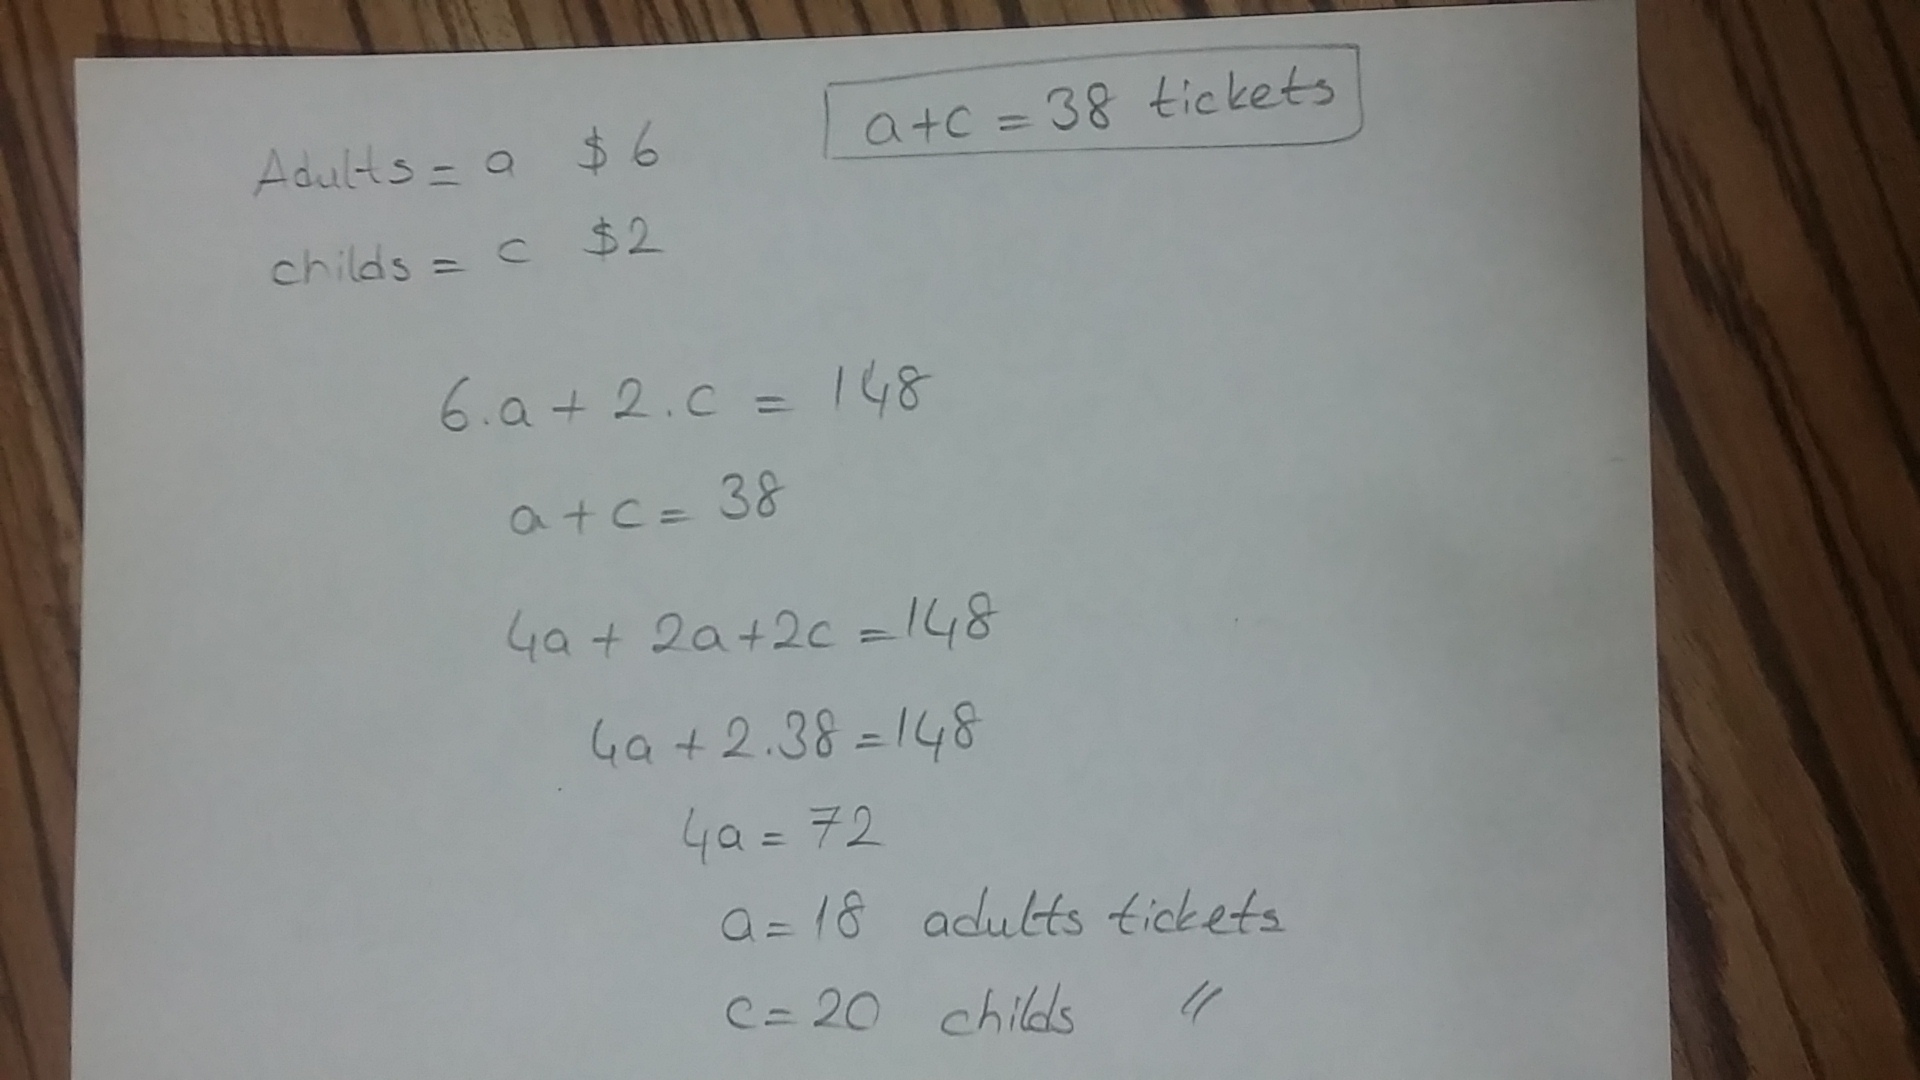 a+c = 38 tickets
Adults = a $6
childs = c $2
6.a + 2.c = 148
a + c = 38
4a + 2a+2c = 148
4a + 2.38 = 148
4a = 72
a = 18 adults tickets
c = 20 childs "